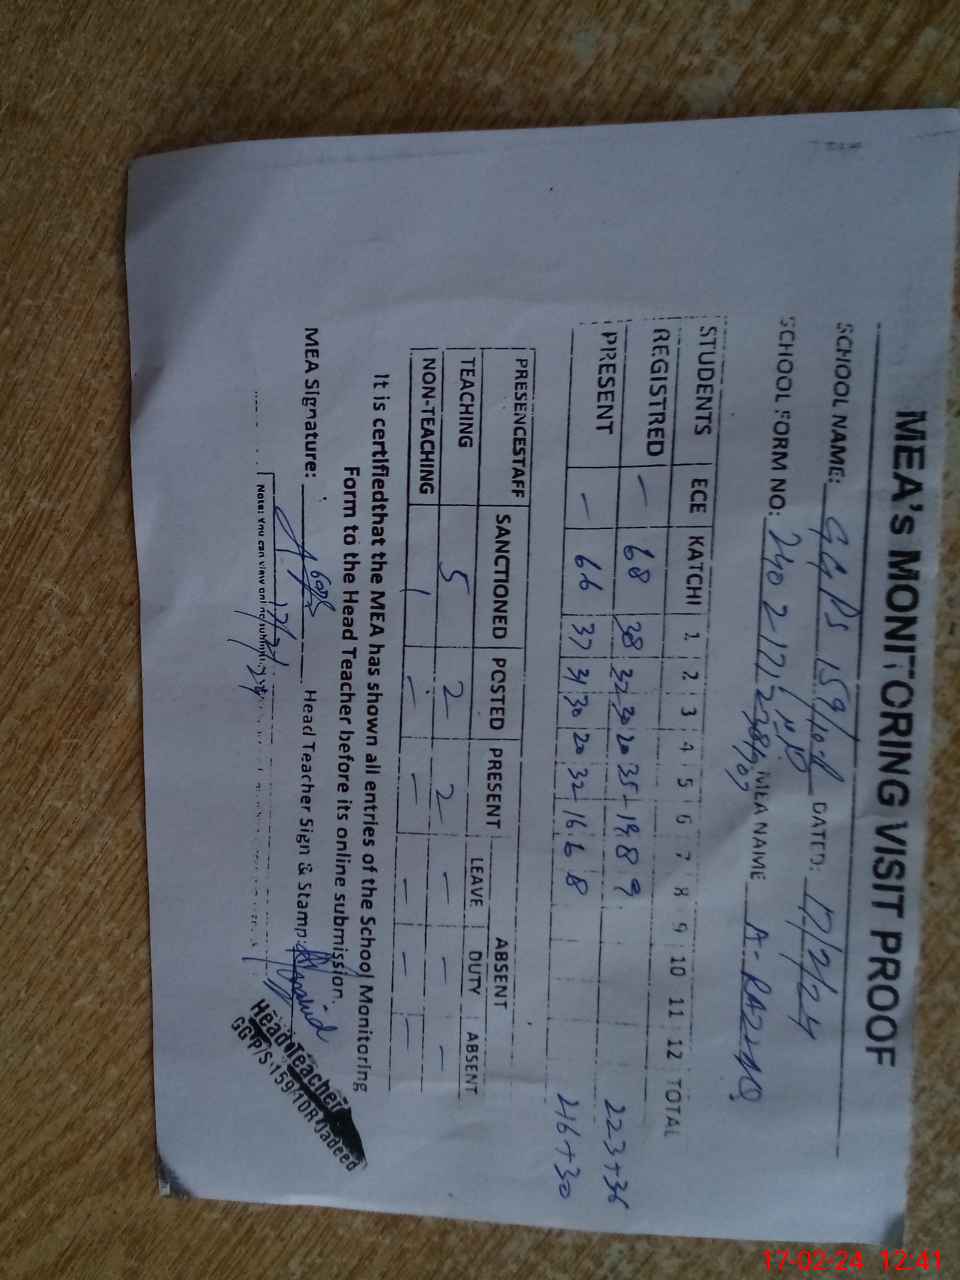 MEA's MONITORING VISIT PROOF
SCHOOL NAME: GGPS 159/10R DATED: 17/2/24
SCHOOL FORM NO: MEA NAME A-RAZZAQ
STUDENTS ECE KATCHI 1 2 3 4 5 6 7 8 9 10 11 12 TOTAL
REGISTRED — 68 38 32 30 20 35 19 8 9 223+36
PRESENT — 66 37 31 30 20 32 16 6 8 216+30
PRESENCESTAFF SANCTIONED POSTED PRESENT ABSENT
LEAVE DUTY ABSENT
TEACHING 5 2 2 — — —
NON-TEACHING 1 — — — — —
It is certifiedthat the MEA has shown all entries of the School Monitoring
Form to the Head Teacher before its online submission.
MEA Signature: Head Teacher Sign & Stamp:
17/2/24
Note: You can view online
Head Teacher
GGP/S 159/10R Jadeed
17-02-24 12:41